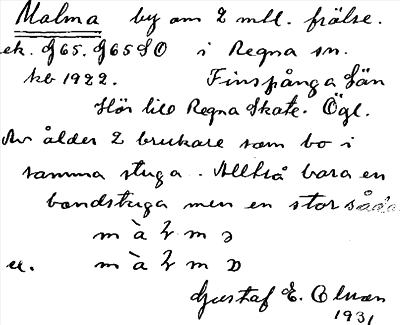 Malma by om 2 mtl. frälse.
ek. J65. J65SO i Regna sn.
kb 1922. Finspånga län
Hör till Regna Skate. Ögl.
Av ålder 2 brukare som bo i
samma stuga. Alltså bara en
bondstuga men en stor såda
m à m
er. m à m
Gustaf E.
1931